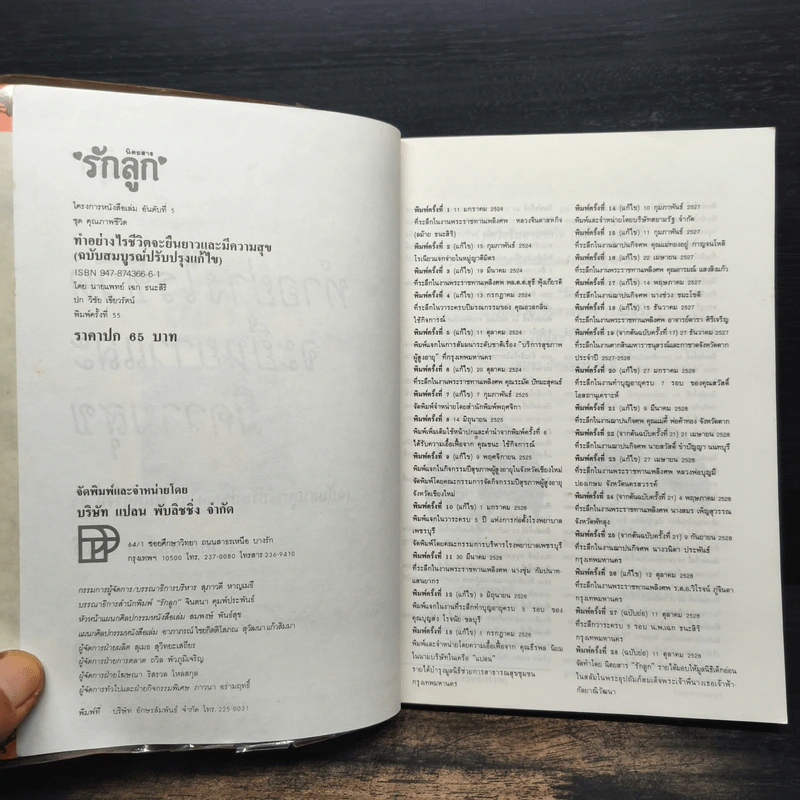 นิตยสาร
รักลูก
โครงการหนังสือเล่ม อันดับที่ 5
ชุด คุณภาพชีวิต
ทำอย่างไรชีวิตจะยืนยาวและมีความสุข
(ฉบับสมบูรณ์ปรับปรุงแก้ไข)
ISBN 947-874366-6-1
โดย นายแพทย์ เฉก ธนะสิริ
ปก วิชัย เขียวรัตน์
พิมพ์ครั้งที่ 55
ราคาปก 65 บาท
จัดพิมพ์และจำหน่ายโดย
บริษัท แปลน พับลิชชิ่ง จำกัด
64/1 ซอยศึกษาวิทยา ถนนสาธรเหนือ บางรัก
กรุงเทพฯ 10500 โทร. 237-0080 โทรสาร 236-9410
กรรมการผู้จัดการ/บรรณาธิการบริหาร สุภาวดี หาญเมธี
บรรณาธิการสำนักพิมพ์ "รักลูก" จินตนา คุมพ์ประพันธ์
หัวหน้าแผนกศิลปกรรมหนังสือเล่ม สมพงษ์ พันธ์สุข
แผนกศิลปกรรมหนังสือเล่ม อาภาภรณ์ ไชยกิตติโสภณ สุวัฒนา แก้วสิมมา
ผู้จัดการฝ่ายผลิต สุเมธ สุวิทยะเสถียร
ผู้จัดการฝ่ายการตลาด ถวิล หัวภูมิเจริญ
ผู้จัดการฝ่ายโฆษณา ริสรวล ไหลสกุล
ผู้จัดการทั่วไปและฝ่ายกิจกรรมพิเศษ ภาวนา อร่ามฤทธิ์
พิมพ์ที่ บริษัท อักษรสัมพันธ์ จำกัด โทร. 225 0031
พิมพ์ครั้งที่ 1 11 มกราคม 2524
ที่ระลึกในงานพระราชทานเพลิงศพ หลวงจินดาสหกิจ
(ละม้าย ธนะสิริ)
พิมพ์ครั้งที่ 2 (แก้ไข) 15 กุมภาพันธ์ 2524
โรเนียวแจกจ่ายในหมู่ญาติมิตร
พิมพ์ครั้งที่ 3 (แก้ไข) 19 มีนาคม 2524
ที่ระลึกในงานพระราชทานเพลิงศพ พล.ต.ต.สุธี ฟุ้งเกียรติ
พิมพ์ครั้งที่ 4 (แก้ไข) 13 กรกฎาคม 2524
ที่ระลึกในวาระครบปีมรณกรรมของ คุณอวลกลิ่น
ไร้กิจการณ์
พิมพ์ครั้งที่ 5 (แก้ไข) 11 ตุลาคม 2524
พิมพ์แจกในการสัมมนาระดับชาติเรื่อง "บริการสุขภาพ
ผู้สูงอายุ" ที่กรุงเทพมหานคร
พิมพ์ครั้งที่ 6 (แก้ไข) 20 ตุลาคม 2524
ที่ระลึกในงานพระราชทานเพลิงศพ คุณระมัด ปัทมะสุคนธ์
พิมพ์ครั้งที่ 7 (แก้ไข) 7 กุมภาพันธ์ 2525
จัดพิมพ์จำหน่ายโดยสำนักพิมพ์พฤศจิกา
พิมพ์ครั้งที่ 8 14 มิถุนายน 2525
พิมพ์เพิ่มเติมใช้หน้าปกและคำนำจากพิมพ์ครั้งที่ 6
ได้รับความเอื้อเฟื้อจาก คุณชนะ ไร้กิจการณ์
พิมพ์ครั้งที่ 9 (แก้ไข) 9 พฤศจิกายน 2525
พิมพ์แจกในกิจกรรมปีสุขภาพผู้สูงอายุในจังหวัดเชียงใหม่
จัดพิมพ์โดยคณะกรรมการจัดกิจกรรมปีสุขภาพผู้สูงอายุ
จังหวัดเชียงใหม่
พิมพ์ครั้งที่ 10 (แก้ไข) 1 มกราคม 2526
พิมพ์แจกในวาระครบ 5 ปี แห่งการก่อตั้งโรงพยาบาล
เพชรบุรี
จัดพิมพ์โดยคณะกรรมการบริหารโรงพยาบาลเพชรบุรี
พิมพ์ครั้งที่ 11 30 มีนาคม 2526
ที่ระลึกในงานพระราชทานเพลิงศพ นางชุ่ม กัมปนาท-
แสนยากร
พิมพ์ครั้งที่ 12 (แก้ไข) 9 มิถุนายน 2526
พิมพ์แจกในงานที่ระลึกทำบุญอายุครบ 5 รอบ ของ
คุณบุญส่ง โรจนัย ชลบุรี
พิมพ์ครั้งที่ 13 (แก้ไข) 1 กรกฎาคม 2526
พิมพ์และจำหน่ายโดยความเอื้อเฟื้อจาก คุณธีรพล นิยม
ในนามบริษัทในเครือ "แปลน"
รายได้บำรุงมูลนิธิช่วยการสาธารณสุขชุมชน
กรุงเทพมหานคร
พิมพ์ครั้งที่ 14 (แก้ไข) 10 กุมภาพันธ์ 2527
พิมพ์และจำหน่ายโดยบริษัทสยามรัฐ จำกัด
พิมพ์ครั้งที่ 15 (แก้ไข) 18 กุมภาพันธ์ 2527
ที่ระลึกในงานฌาปนกิจศพ คุณแม่ทองอยู่ กาญจนโหติ
พิมพ์ครั้งที่ 16 (แก้ไข) 22 เมษายน 2527
ที่ระลึกในงานพระราชทานเพลิงศพ คุณอารมณ์ แสงสิงแก้ว
พิมพ์ครั้งที่ 17 (แก้ไข) 14 พฤษภาคม 2527
ที่ระลึกในงานฌาปนกิจศพ นางช่วง ชมะโชติ
พิมพ์ครั้งที่ 18 (แก้ไข) 15 ธันวาคม 2527
ที่ระลึกในงานพระราชทานเพลิงศพ อาจารย์ดารา คิริเจริญ
พิมพ์ครั้งที่ 19 (จากต้นฉบับครั้งที่ 17) 27 ธันวาคม 2527
ที่ระลึกในงานตากสินมหาราชานุสรณ์และกาชาดจังหวัดตาก
ประจำปี 2527-2528
พิมพ์ครั้งที่ 20 (แก้ไข) 27 มกราคม 2528
ที่ระลึกในงานทำบุญอายุครบ 7 รอบ ของคุณสวัสดิ์
โอสถานุเคราะห์
พิมพ์ครั้งที่ 21 (แก้ไข) 9 มีนาคม 2528
ที่ระลึกในงานฌาปนกิจศพ คุณแม่คี้ พ่อค้าทอง จังหวัดตาก
พิมพ์ครั้งที่ 22 (จากต้นฉบับครั้งที่ 21) 21 เมษายน 2528
ที่ระลึกในงานฌาปนกิจศพ นายสวัสดิ์ ขำปัญญา นนทบุรี
พิมพ์ครั้งที่ 23 (แก้ไข) 27 เมษายน 2528
ที่ระลึกในงานพระราชทานเพลิงศพ หลวงพ่อบุญมี
ปองเกษม จังหวัดนครสวรรค์
พิมพ์ครั้งที่ 24 (จากต้นฉบับครั้งที่ 21) 4 พฤษภาคม 2528
ที่ระลึกในงานพระราชทานเพลิงศพ นางสมร เพ็ญสุวรรณ
จังหวัดพัทลุง
พิมพ์ครั้งที่ 25 (จากต้นฉบับครั้งที่ 21) 9 กันยายน 2528
ที่ระลึกในงานฌาปนกิจศพ นางวนิดา ประพันธ์
กรุงเทพมหานคร
พิมพ์ครั้งที่ 26 (แก้ไข) 12 ตุลาคม 2528
ที่ระลึกในงานพระราชทานเพลิงศพ ร.ต.อ.วิโรจน์ ภู่จินดา
กรุงเทพมหานคร
พิมพ์ครั้งที่ 27 (ฉบับย่อ) 11 ตุลาคม 2528
ที่ระลึกวาระครบ 5 รอบ น.พ.เฉก ธนะสิริ
กรุงเทพมหานคร
พิมพ์ครั้งที่ 28 (ฉบับย่อ) 11 ตุลาคม 2528
จัดทำโดย นิตยสาร "รักลูก" รายได้มอบให้มูลนิธิเด็กอ่อน
ในสลัมในพระอุปถัมภ์สมเด็จพระเจ้าพี่นางเธอเจ้าฟ้า-
กัลยาณิวัฒนา